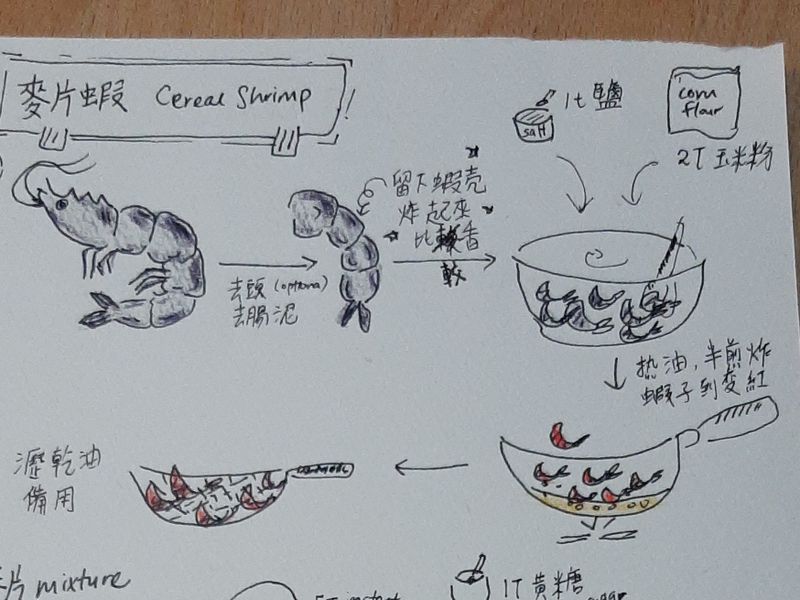 麥片蝦 Cereal Shrimp
1t 鹽
salt
corn
flour
2T 玉米粉
留下蝦殼
炸起來
比較香
去頭 (optional)
去腸泥
热油, 半煎炸
蝦子到變紅
瀝乾油
備用
片 mixture
1T 黃糖